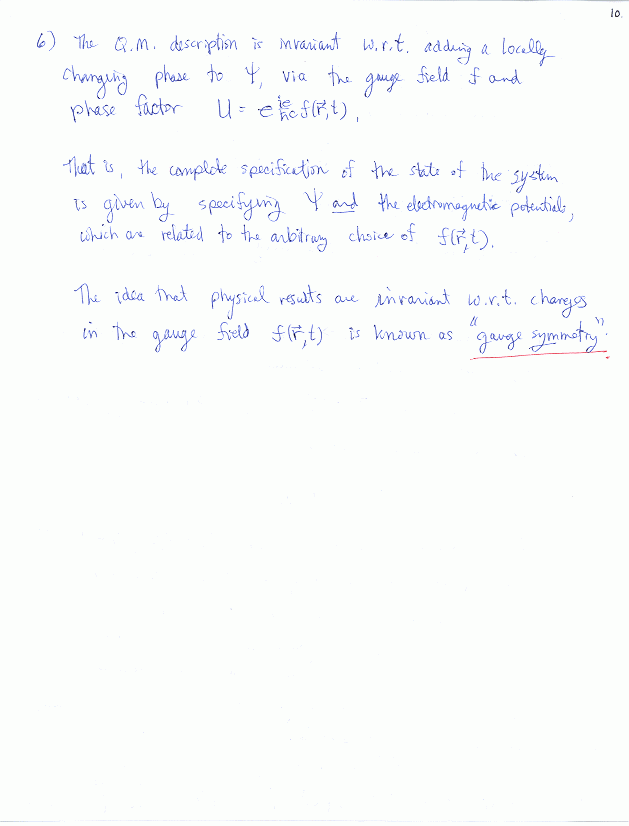 10.
6) The Q.M. description is invariant w.r.t. adding a locally
changing phase to Ψ, via the gauge field f and
phase factor U = e^{\frac{ie}{ħc} f(\vec{r},t)},
That is, the complete specification of the state of the system
is given by specifying Ψ and the electromagnetic potentials,
which are related to the arbitrary choice of f(\vec{r},t).
The idea that physical results are invariant w.r.t. changes
in the gauge field f(\vec{r},t) is known as "gauge symmetry".